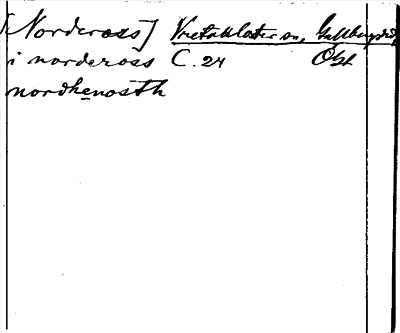 [Nordeross] Vretakloster sn, Gullbergs hd,
i nordeross C. 24 Ögl
nordhenosth